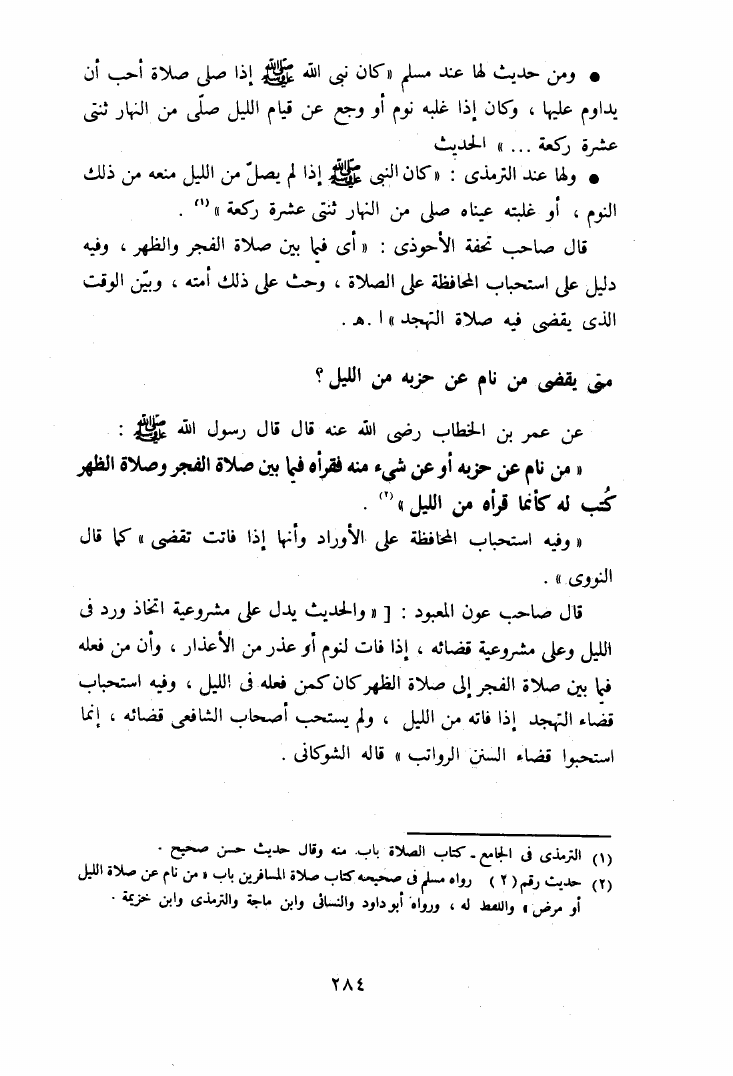 ● ومن حديث لها عند مسلم « كان نبى الله ﷺ إذا صلى صلاة أحب أن
يداوم عليها ، وكان إذا غلبه نوم أو وجع عن قيام الليل صلّى من النهار ثنتى
عشرة ركعة ... » الحديث
● ولها عند الترمذى : « كان النبى ﷺ إذا لم يصلّ من الليل منعه من ذلك
النوم ، أو غلبته عيناه صلى من النهار ثنتى عشرة ركعة »(١) .
قال صاحب تحفة الأحوذى : « أى فيما بين صلاة الفجر والظهر ، وفيه
دليل على استحباب المحافظة على الصلاة ، وحث على ذلك أمته ، وبيّن الوقت
الذى يقضى فيه صلاة التهجد » ا .هـ .
متى يقضى من نام عن حزبه من الليل ؟
عن عمر بن الخطاب رضى الله عنه قال قال رسول الله ﷺ :
« من نام عن حزبه أو عن شىء منه فقرأه فيما بين صلاة الفجر وصلاة الظهر
كُتب له كأنما قرأه من الليل »(٢) .
« وفيه استحباب المحافظة على الأوراد وأنها إذا فاتت تقضى » كما قال
النووى » .
قال صاحب عون المعبود : [ « والحديث يدل على مشروعية اتخاذ ورد فى
الليل وعلى مشروعية قضائه ، إذا فات لنوم أو عذر من الأعذار ، وأن من فعله
فيما بين صلاة الفجر إلى صلاة الظهر كان كمن فعله فى الليل ، وفيه استحباب
قضاء التهجد إذا فاته من الليل ، ولم يستحب أصحاب الشافعى قضائه ، إنما
استحبوا قضاء السنن الرواتب » قاله الشوكانى .
(١) الترمذى فى الجامع ـ كتاب الصلاة باب منه وقال حديث حسن صحيح .
(٢) حديث رقم ( ٢ ) رواه مسلم فى صحيحه كتاب صلاة المسافرين باب « من نام عن صلاة الليل
أو مرض » واللفظ له ، ورواه أبو داود والنسائى وابن ماجة والترمذى وابن خزيمة .
٢٨٤